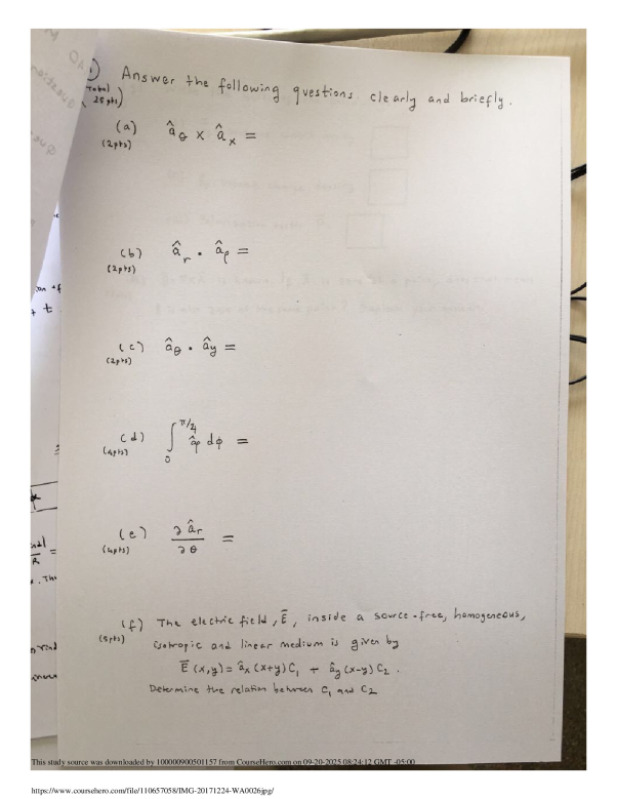 Answer the following questions clearly and briefly.
(Total
25 pts)
(a) â_θ × â_x =
(2pts)
(b) â_r · â_ρ =
(2pts)
(c) â_θ · â_y =
(2pts)
(d) ∫_0^{π/2} ρ̂ dφ =
(4pts)
(e) ∂â_r / ∂θ =
(4pts)
(f) The electric field, Ē, inside a source-free, homogeneous,
(5pts) isotropic and linear medium is given by
Ē(x,y) = â_x (x+y) C₁ + â_y (x-y) C₂ .
Determine the relation between C₁ and C₂
This study source was downloaded by 100000900501157 from CourseHero.com on 09-20-2025 08:24:12 GMT -05:00
https://www.coursehero.com/file/110657058/IMG-20171224-WA0026jpg/